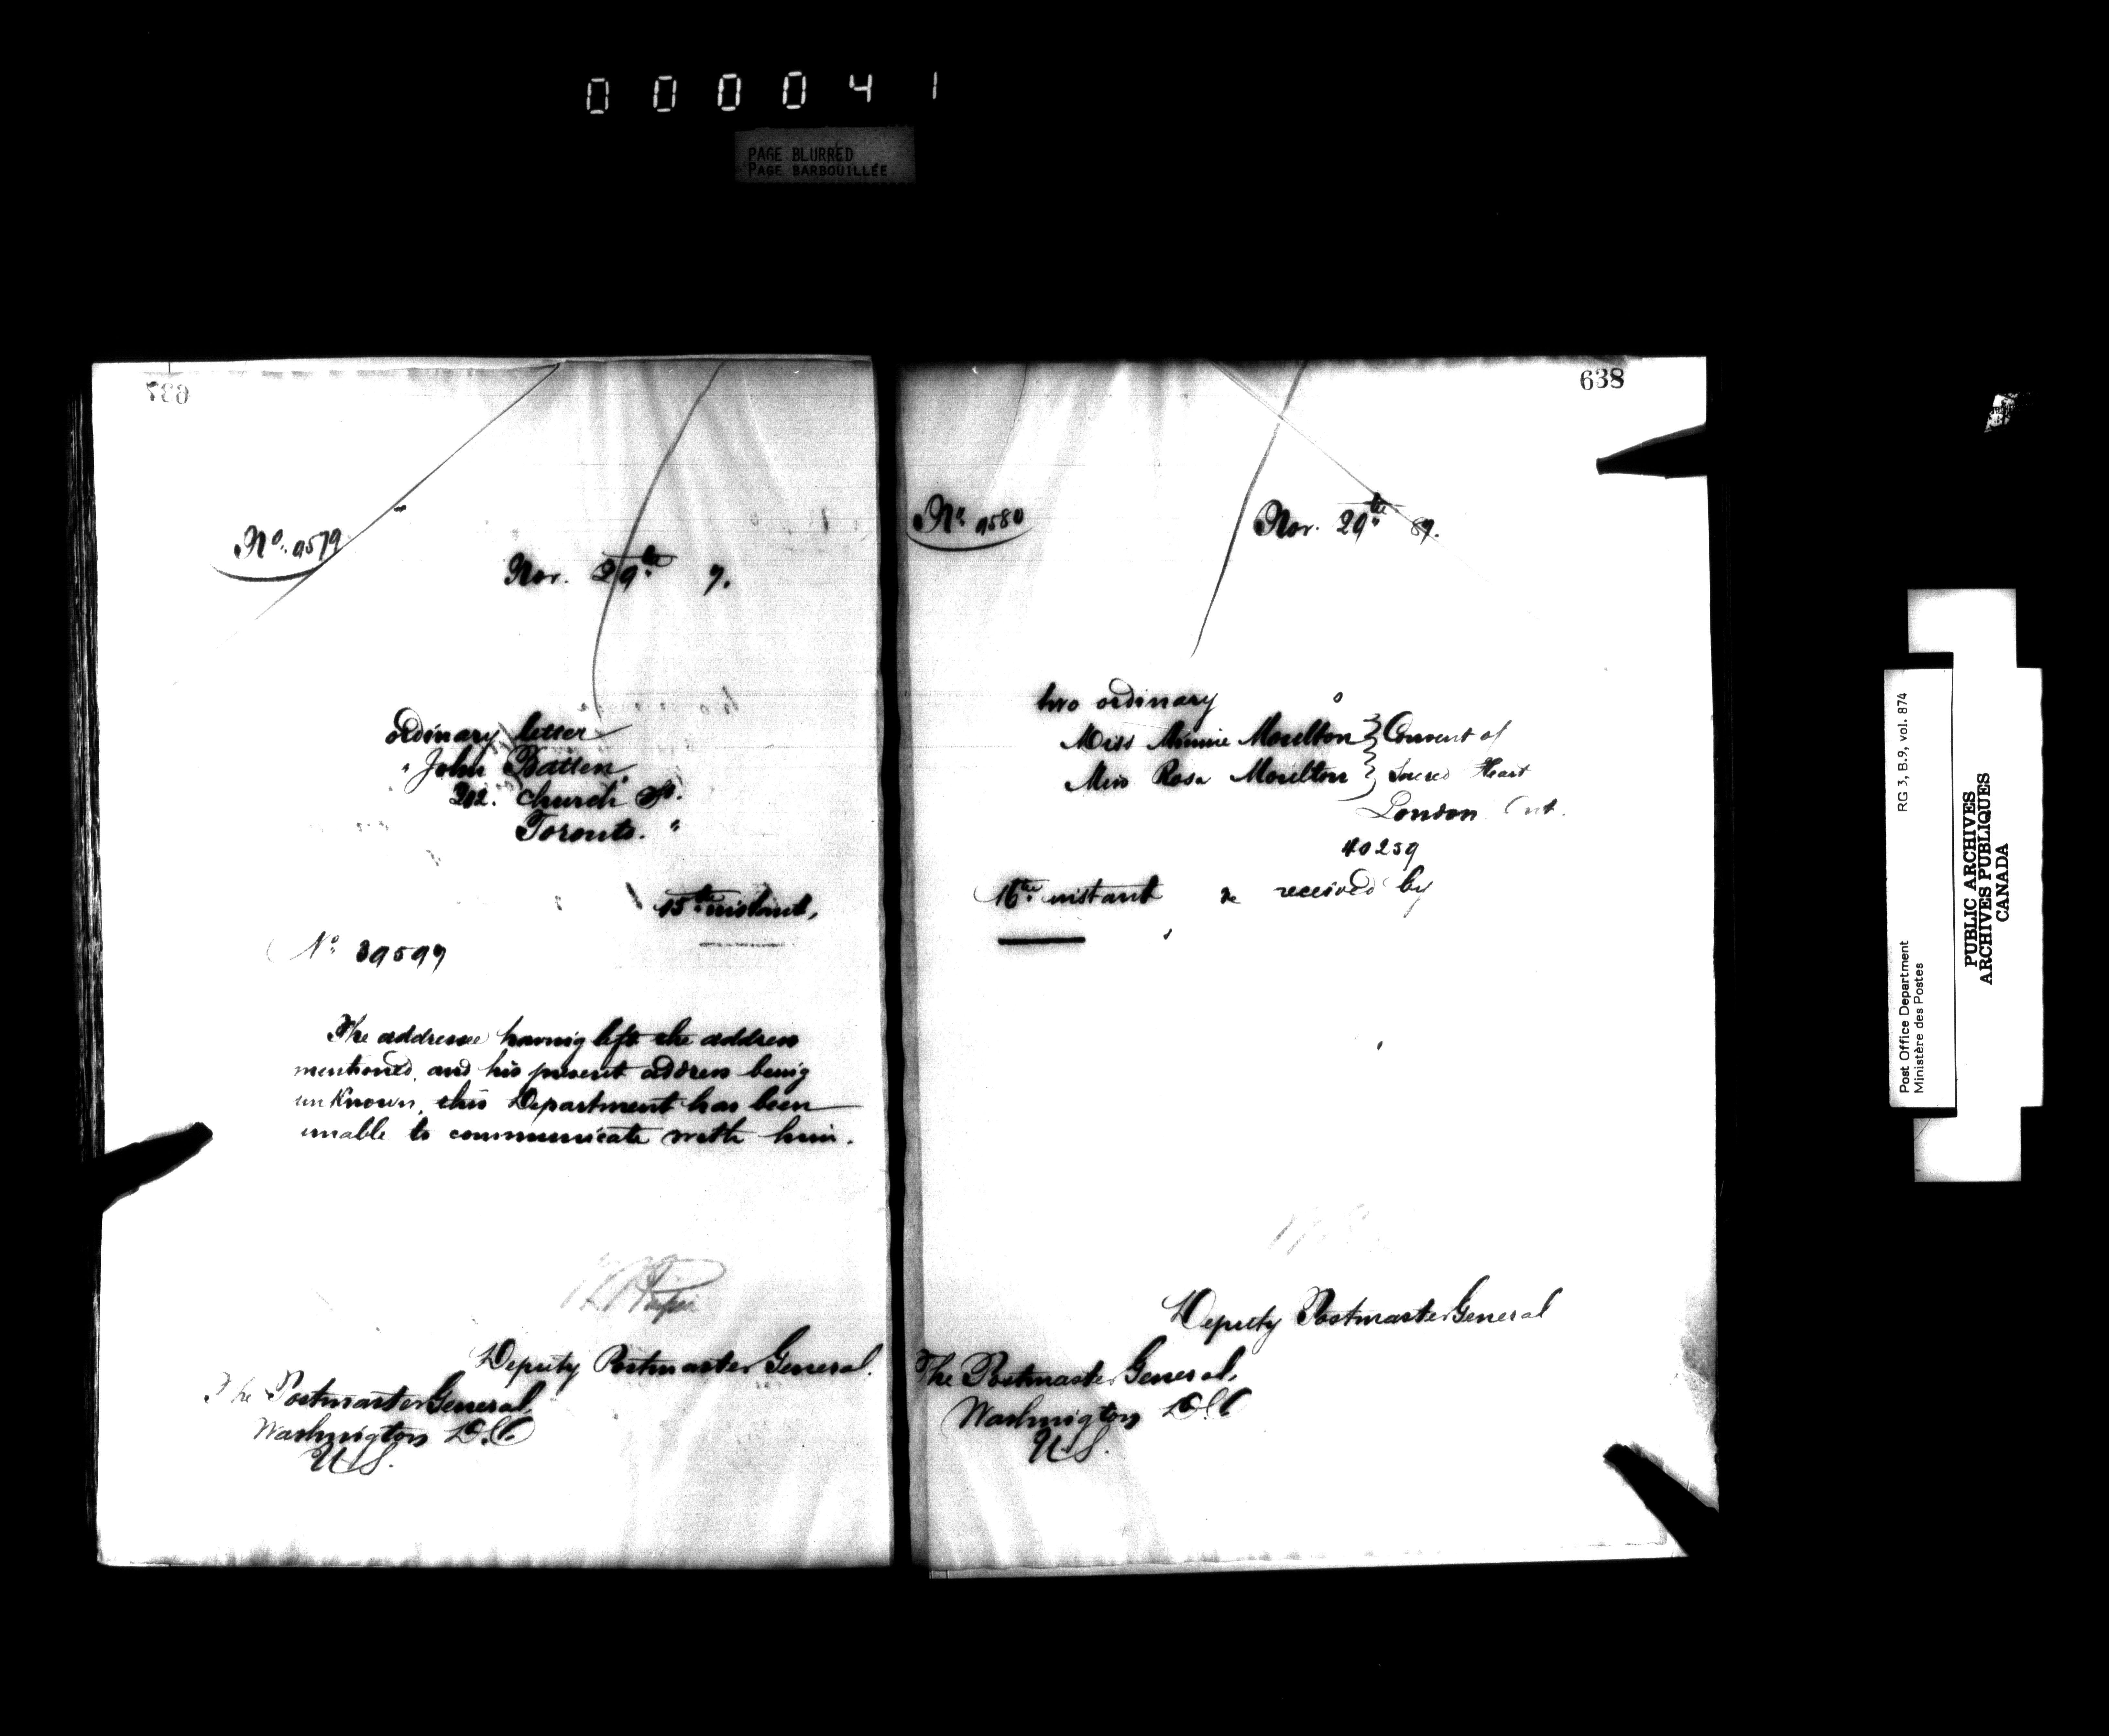 000041
PAGE BLURRED
PAGE BARBOUILLÉE
637
No. 9579
Nov. 29th 7.
ordinary letter
"John Batten,
202. Church St.
Toronto. "
15th instant,
No 39597
The addressee having left the address
mentioned, and his present address being
unknown, this Department has been
unable to communicate with him.
Deputy Postmaster General.
The Postmaster General,
Washington D.C.
U.S.
638
No. 9580
Nov. 29th 87.
two ordinary
Miss Minnie Moulton } Convent of
Miss Rosa Moulton } Sacred Heart
London Ont.
40259
16th instant & received by
Deputy Postmaster General
The Postmaster General,
Washington D.C.
U.S.
RG 3, B.9, vol. 874
Post Office Department
Ministère des Postes
PUBLIC ARCHIVES
ARCHIVES PUBLIQUES
CANADA